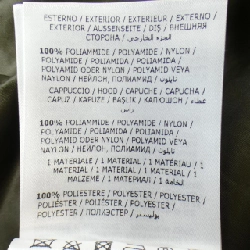 ESTERNO / EXTERIOR / EXTERIEUR / EXTERNO /
EXTERIOR / AUSSENSEITE / DIŞ / ВНЕШНЯЯ
СТОРОНА / الجزء الخارجي
100% POLIAMMIDE / POLYAMIDE / NYLON /
POLYAMIDE / POLIAMIDA / POLIAMIDA /
POLYAMID ODER NYLON / POLYAMID VEYA
NAYLON / НЕЙЛОН, ПОЛИАМИД / نايلون
CAPPUCCIO / HOOD / CAPUCHE / CAPUCHA /
CAPUZ / KAPUZE / BAŞLIK / КАПЮШОН / غطاء
رأس
100% POLIAMMIDE / POLYAMIDE / NYLON /
POLYAMIDE / POLIAMIDA / POLIAMIDA /
POLYAMID ODER NYLON / POLYAMID VEYA
NAYLON / НЕЙЛОН, ПОЛИАМИД / نايلون
1 MATERIALE / 1 MATERIAL / 1 MATÉRIAU / 1
MATERIAL / 1 MATERIAL / 1 MATERIAL / 1
MALZEME / 1 МАТЕРИАЛ / الخامة 1
100% POLIESTERE / POLYESTER / POLYESTER /
POLIÉSTER / POLIÉSTER / POLYESTER /
POLYESTER / ПОЛИЭСТЕР / بوليستر